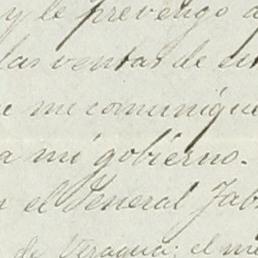 y le prevengo a
las ventas de
me comunique
a mi gobierno.
el General
de Veragua; el